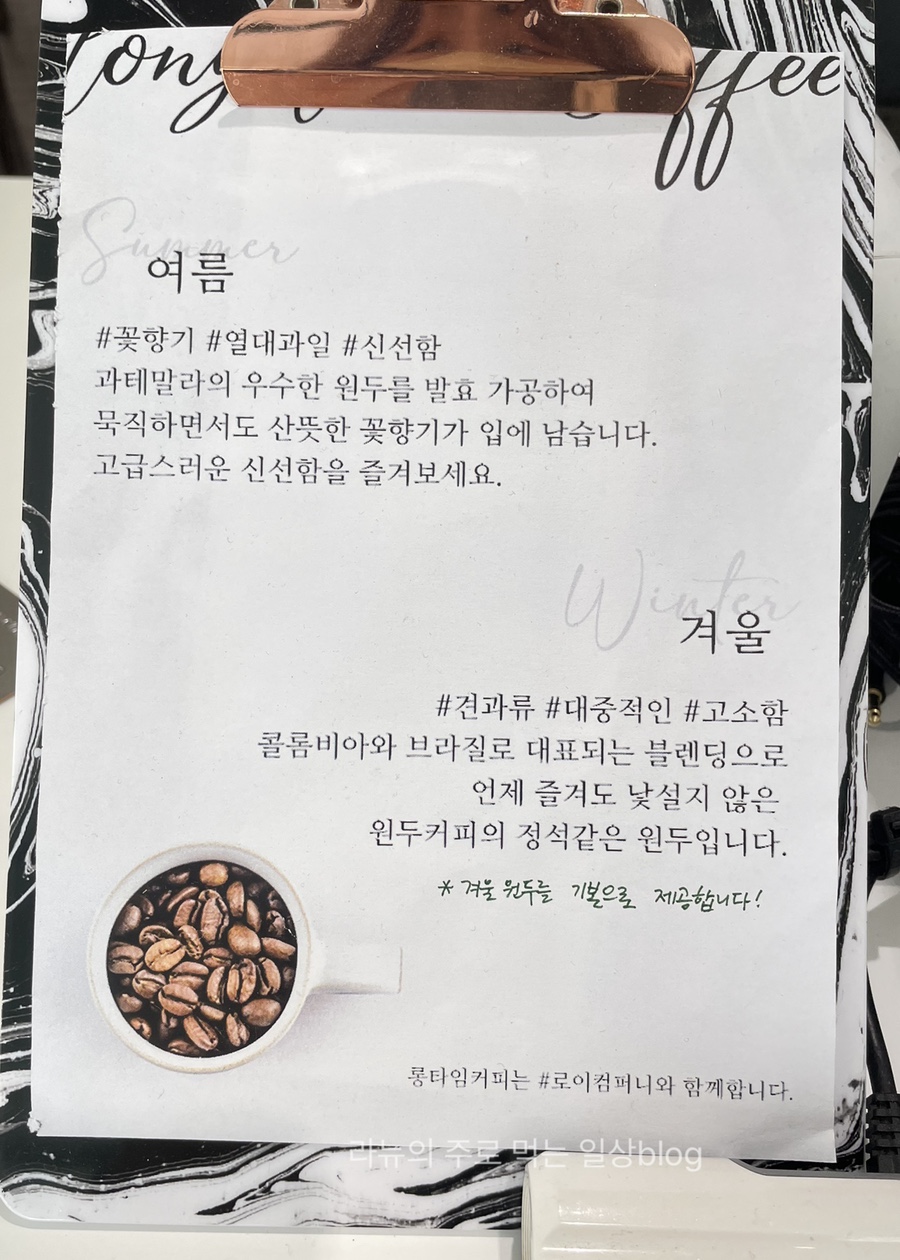 Summer
여름
#꽃향기 #열대과일 #신선함
과테말라의 우수한 원두를 발효 가공하여
묵직하면서도 산뜻한 꽃향기가 입에 남습니다.
고급스러운 신선함을 즐겨보세요.
Winter
겨울
#견과류 #대중적인 #고소함
콜롬비아와 브라질로 대표되는 블렌딩으로
언제 즐겨도 낯설지 않은
원두커피의 정석같은 원두입니다.
* 겨울 원두를 기본으로 제공합니다!
롱타임커피는 #로이컴퍼니와 함께합니다.
라뉴의 주로 먹는 일상blog